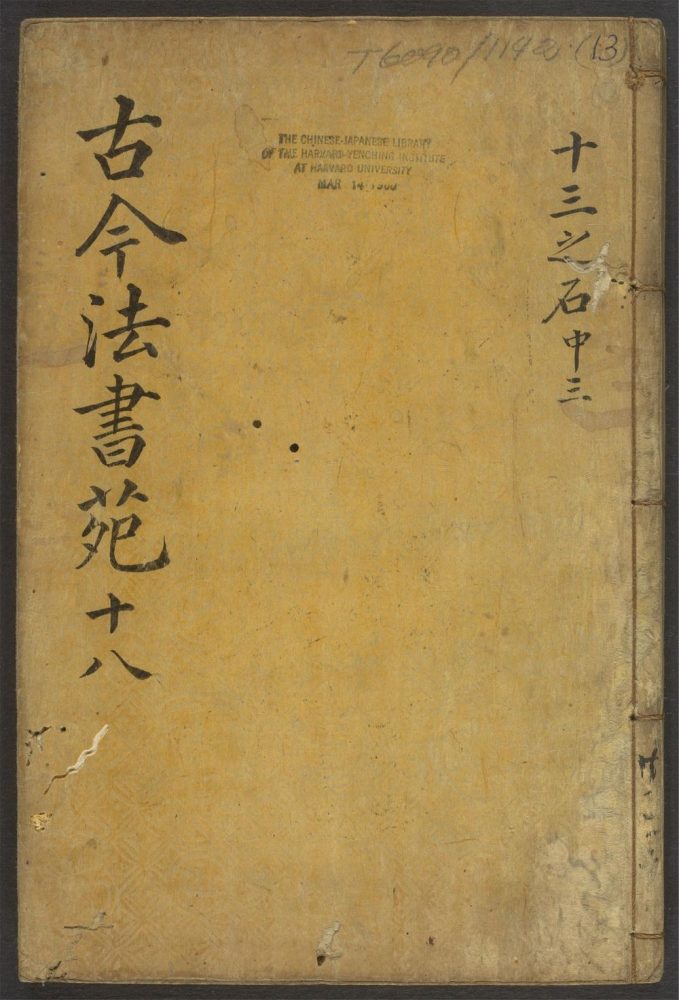 T6090/1142 (13)
THE CHINESE-JAPANESE LIBRARY
OF THE HARVARD-YENCHING INSTITUTE
AT HARVARD UNIVERSITY
MAR 14
十三之石中三
古今法書苑十八